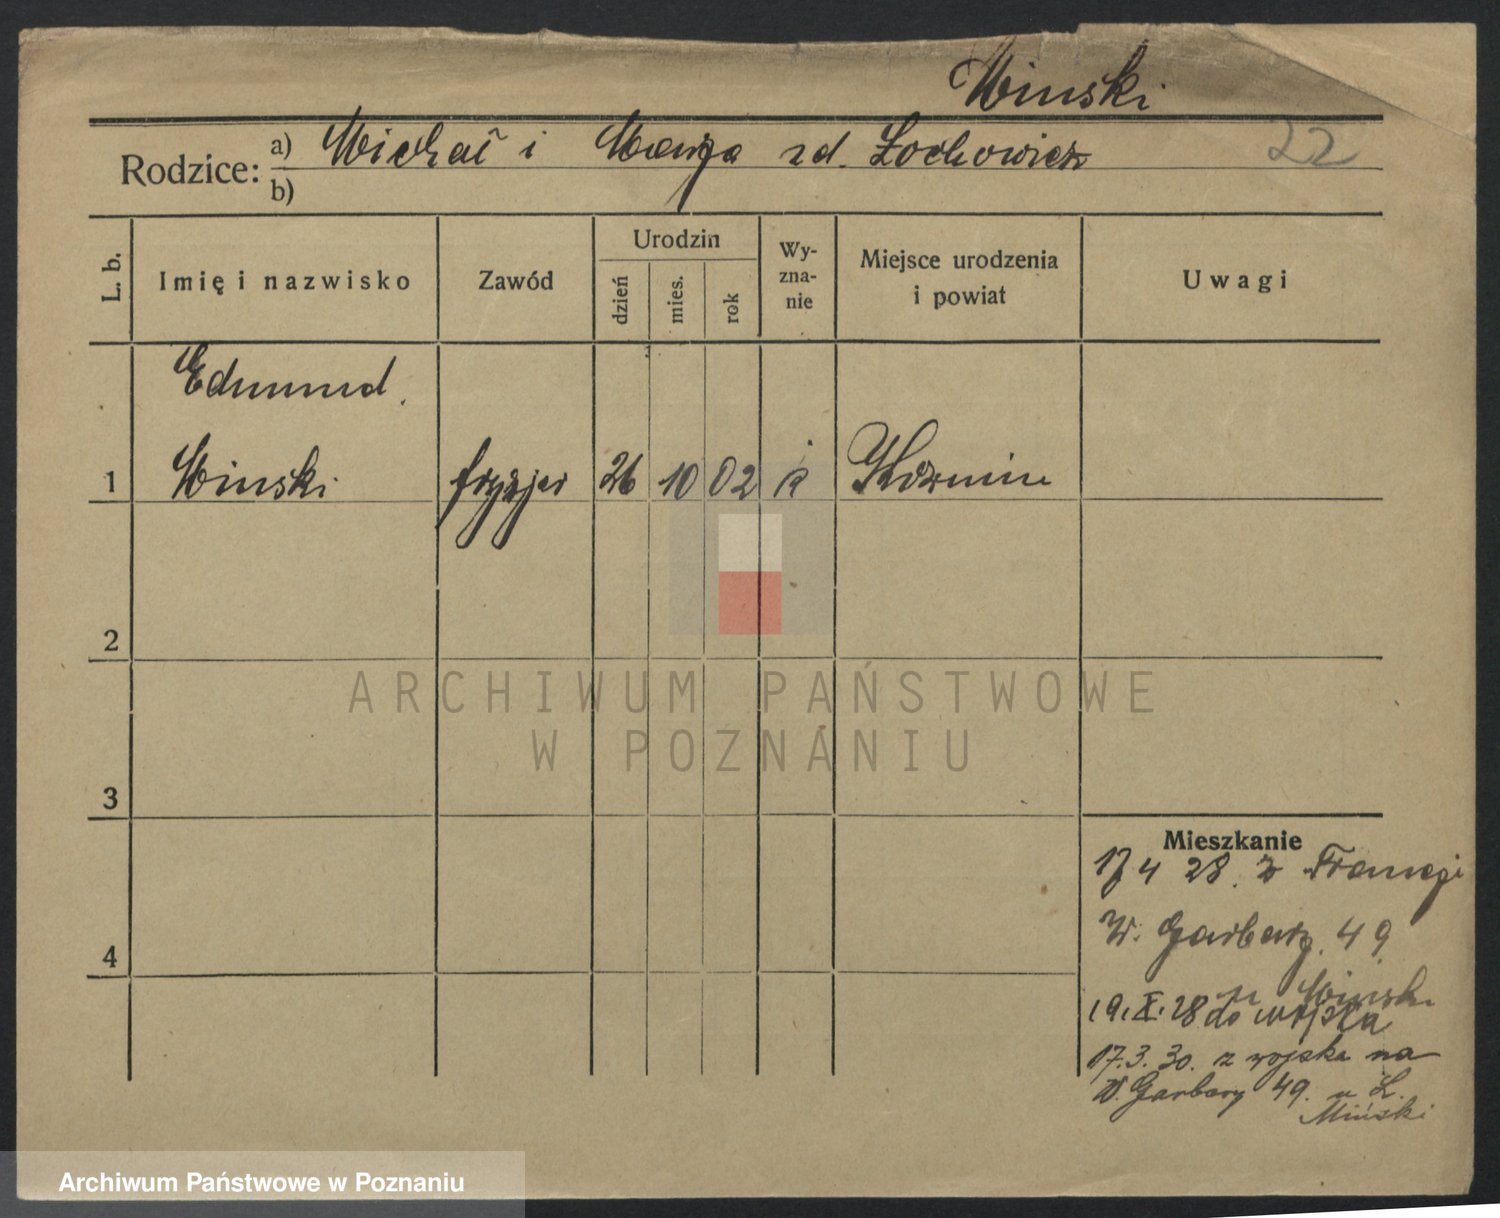 Minski
Rodzice: a) Michał i Maryja zd. Lochowicz
22
b)
L. b.
Imię i nazwisko
Zawód
Urodzin
dzień
mies.
rok
Wy-
zna-
nie
Miejsce urodzenia
i powiat
Uwagi
Edmund
1 Minski fryzjer 26 10 02 Kozmin
2
ARCHIWUM PAŃSTWOWE
W POZNANIU
3
Mieszkanie
17 4 28. z Francji
W. Garbary 49
4
u Minski
19.X.28 do wojska
17.3.30. z wojska na
W. Garbary 49. u L.
Miński
Archiwum Państwowe w Poznaniu